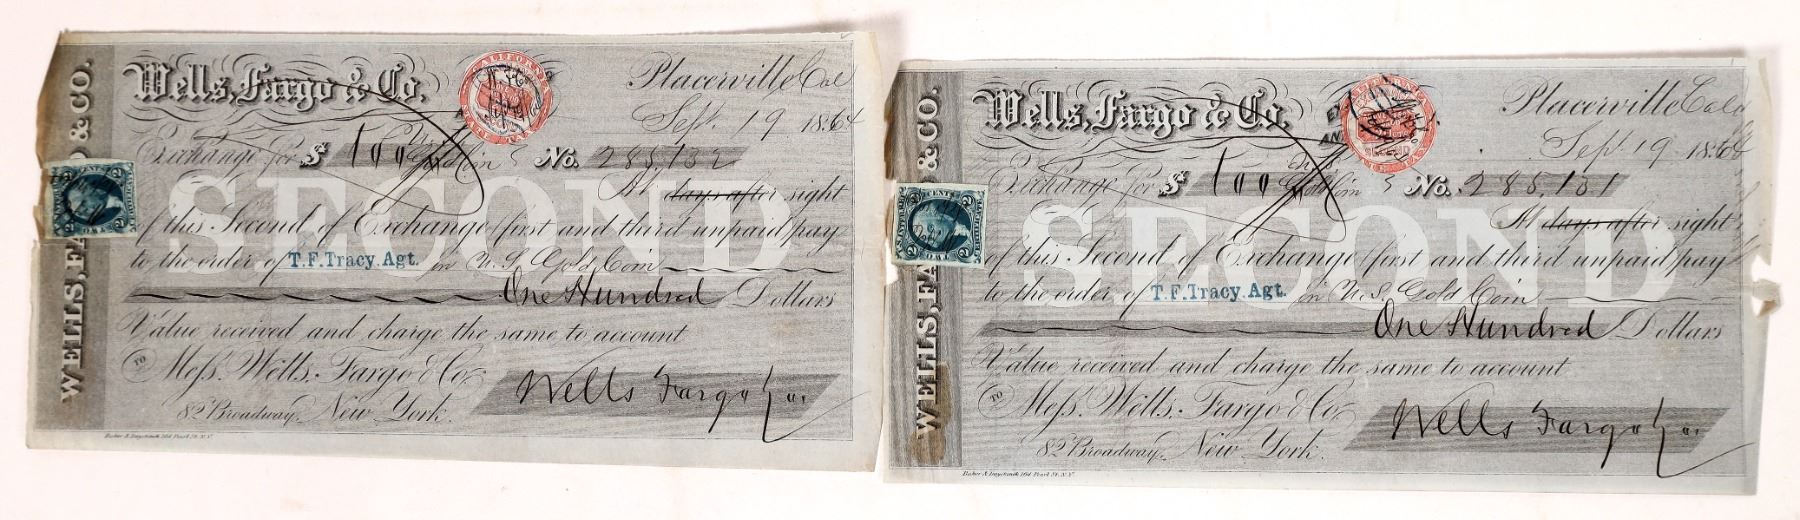 WELLS, FA & CO.
Wells, Fargo & Co.
Placerville Cal
Sep 19 1864
CALIFORNIA
Exchange for $ 100 Gold Coin No. 285,132
SECOND
At days after sight
of this Second of Exchange (first and third unpaid) pay
to the order of T. F. Tracy. Agt. in U. S. Gold Coin
One Hundred Dollars
Value received and charge the same to account
TO Mess. Wells, Fargo & Co.
82 Broadway, New York.
Wells Fargo & Co
WELLS, FA & CO.
Wells, Fargo & Co.
Placerville Cala
Sep. 19 1864
Exchange for $ 100 Gold Coin No. 285,131
SECOND
At days after sight
of this Second of Exchange (first and third unpaid) pay
to the order of T. F. Tracy. Agt. in U. S. Gold Coin
One Hundred Dollars
Value received and charge the same to account
TO Mess. Wells, Fargo & Co.
82 Broadway, New York.
Wells Fargo & Co